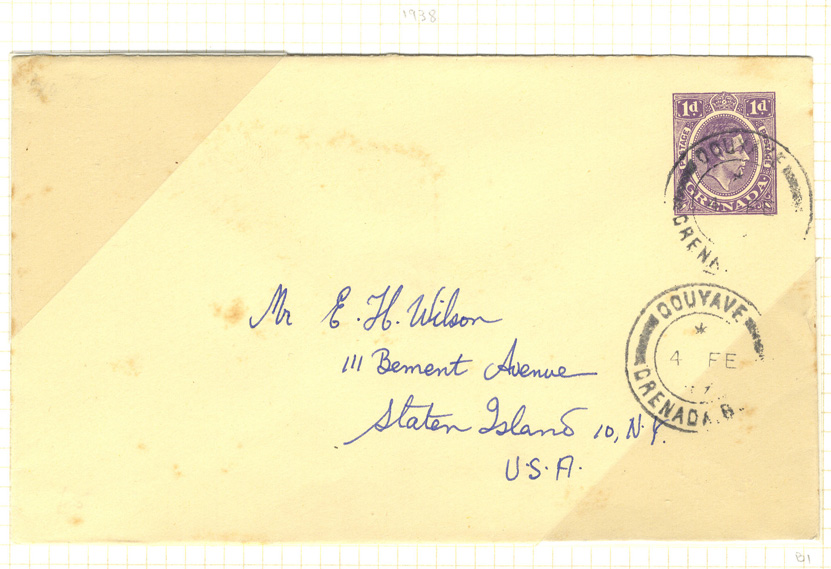 1938
1d 1d
POSTAGE
GRENADA
GOUYAVE
GRENA
Mr E. H. Wilson
111 Bement Avenue
Staten Island 10, N.Y.
U.S.A.
GOUYAVE
*
4 FE
GRENADA.B
B1